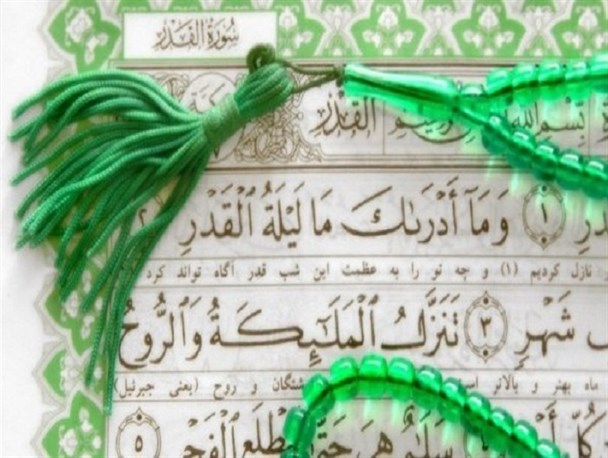 سُورَةُ الْقَدْرِ
بِسْمِ اللهِ
الْقَدْرِ
دْرِ ۱ وَمَآ أَدْرَىٰكَ مَا لَيْلَةُ ٱلْقَدْرِ ۲
نازل کردیم (۱) و چه تو را به عظمت این شب قدر آگاه تواند کرد
شَهْرٍ ۳ تَنَزَّلُ ٱلْمَلَٰٓئِكَةُ وَٱلرُّوحُ
ماه بهتر و بالاتر شتگان و روح (یعنی جبرئیل)
كُلِّ سَلَٰمٌ هِيَ حَتَّىٰ مَطْلَعِ ٱلْفَجْ ۵